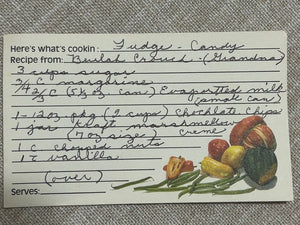 Here's what's cookin: Fudge - Candy
Recipe from: Beulah Crouch - (Grandma)
3 cups sugar
3/4 C margarine
2/3 C (5 1/3 oz can) Evaportted milk
(small can)
1-12 oz pkg (2 cups) Chocklate Chips
1 jar kraft marshmellow
(7 oz size) creme
1 C chopped nuts
1 t vanilla
(over)
Serves: